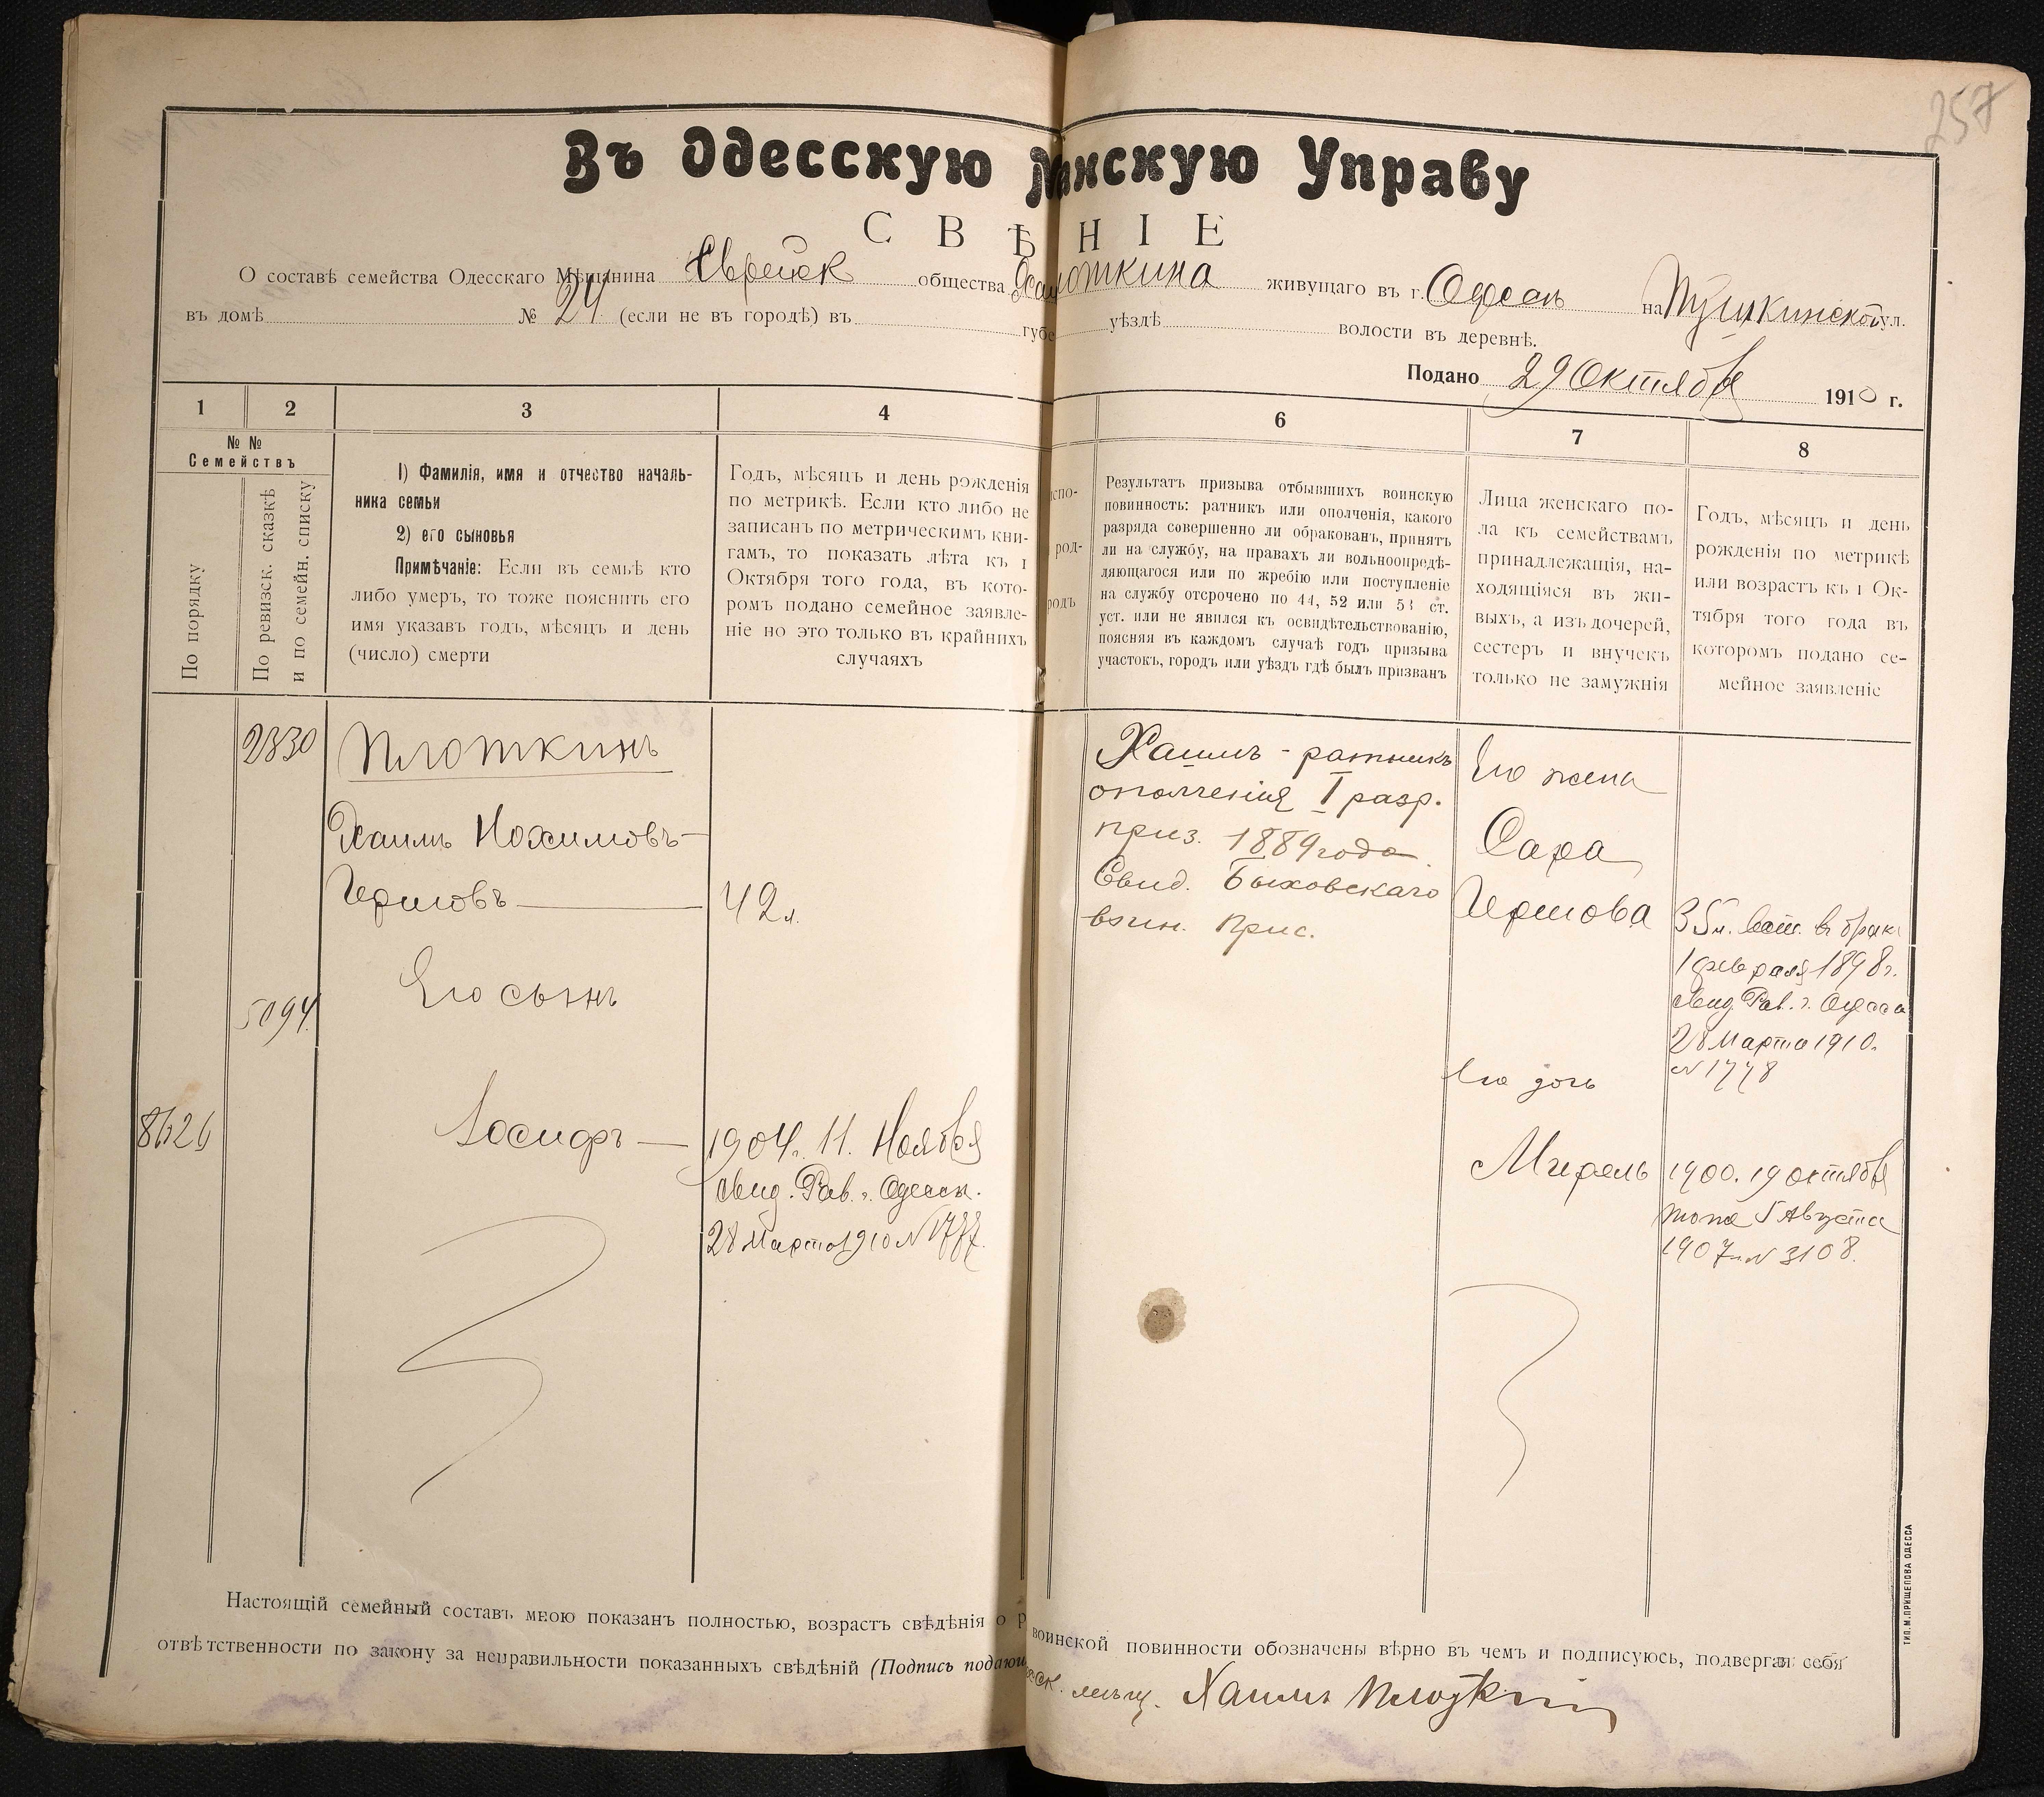 257
Въ Одесскую М нскую Управу
СВѢ НІЕ
О составѣ семейства Одесскаго Мѣщанина Еврейск общества Ха лоткина живущаго въ г. Одессѣ на Пушкинской ул.
въ домѣ № 24 (если не въ городѣ) въ губе уѣздѣ волости въ деревнѣ.
Подано 29 Октября 1910 г.
1
2
3
4
6
7
8
№ №
Семействъ
По порядку
По ревизск. сказкѣ
и по семейн. списку
1) Фамилія, имя и отчество началь-
ника семьи
2) его сыновья
Примѣчаніе: Если въ семьѣ кто
либо умеръ, то тоже пояснить его
имя указавъ годъ, мѣсяцъ и день
(число) смерти
Годъ, мѣсяцъ и день рожденія
по метрикѣ. Если кто либо не
записанъ по метрическимъ кни-
гамъ, то показать лѣта къ 1
Октября того года, въ кото-
ромъ подано семейное заявле-
ніе но это только въ крайнихъ
случаяхъ
спо-
род-
родъ
Результатъ призыва отбывшихъ воинскую
повинность: ратникъ или ополченія, какого
разряда совершенно ли обракованъ, принятъ
ли на службу, на правахъ ли вольноопредѣ-
ляющагося или по жребію или поступленіе
на службу отсрочено по 44, 52 или 53 ст.
уст. или не явился къ освидѣтельствованію,
поясняя въ каждомъ случаѣ годъ призыва
участокъ, городъ или уѣздъ гдѣ былъ призванъ
Лица женскаго по-
ла къ семействамъ
принадлежащія, на-
ходящіяся въ жи-
выхъ, а изъ дочерей,
сестеръ и внучекъ
только не замужнія
Годъ, мѣсяцъ и день
рожденія по метрикѣ
или возрастъ къ 1 Ок-
тября того года въ
которомъ подано се-
мейное заявленіе
2830
Плоткинъ
Хаимъ Нохимовъ-
Гершовъ
42 л.
5094
Его сынъ
8626
Іосифъ
1904 г. 11. Ноября
Свид. Рав. г. Одессы.
28 Марта 1910 № 1777.
Хаимъ - ратникъ
ополченія I разр.
приз. 1889 года.
Свид. Быховскаго
воин. прис.
Его жена
Сара
Гершова
35 л. вст. въ бракъ
1 февраля 1898 г.
Свид. Рав. г. Одессы
28 Марта 1910.
№ 1778
Его дочь
Мирель
1900. 19 октября
тоже 5 Августа
1907 г. № 3108.
Настоящій семейный составъ мною показанъ полностью, возрастъ свѣдѣнія о воинской повинности обозначены вѣрно въ чемъ и подписуюсь, подвергая себя
отвѣтственности по закону за неправильности показанныхъ свѣдѣній (Подпись подающ
еск. мѣщ. Хаимъ Плоткин
ТИП. М. ПРИЩЕПОВА ОДЕССА